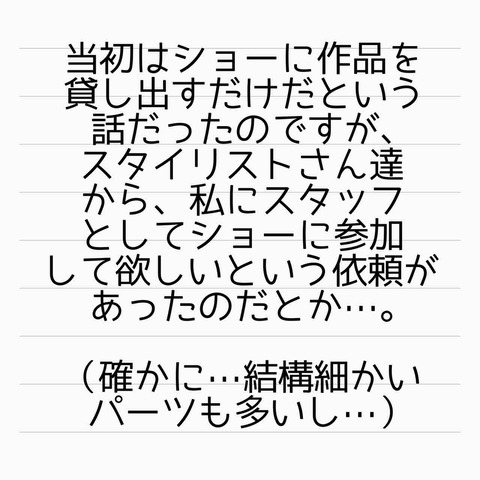 当初はショーに作品を
貸し出すだけだという
話だったのですが、
スタイリストさん達
から、私にスタッフ
としてショーに参加
して欲しいという依頼が
あったのだとか…。
（確かに…結構細かい
パーツも多いし…）